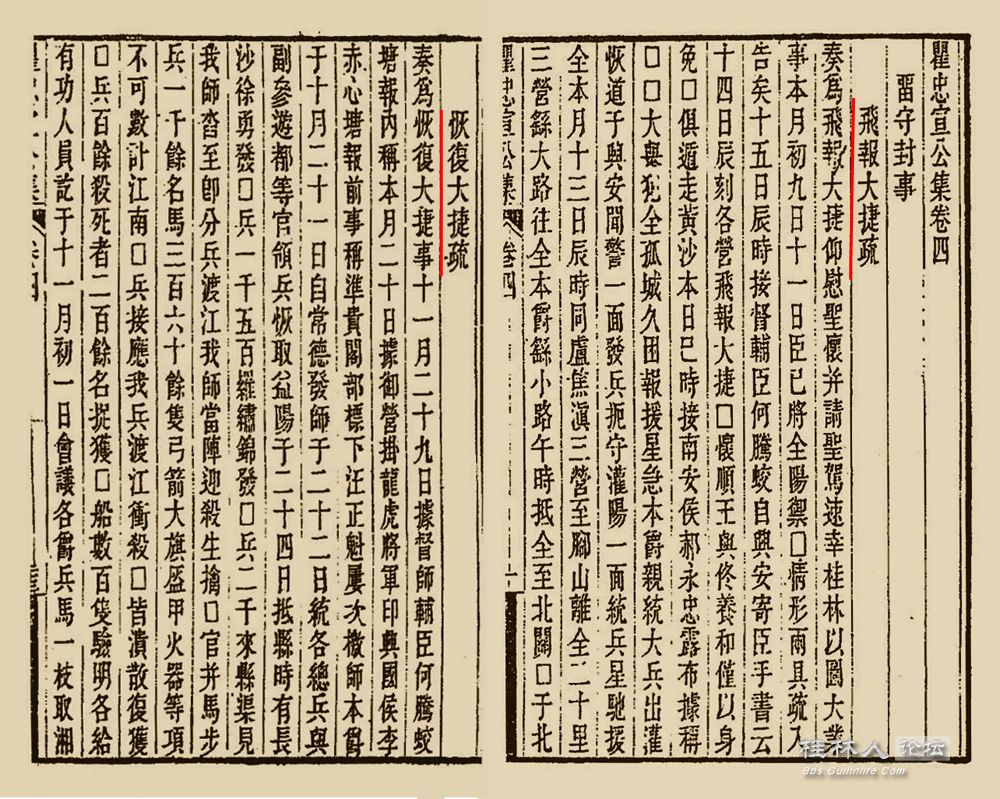 瞿忠宣公集卷四
留守封事
飛報大捷疏
奏爲飛報大捷仰慰聖懷并請聖駕速幸桂林以圖大業
事本月初九日十一日臣已將全陽禦□情形兩具疏入
告矣十五日辰時接督輔臣何騰蛟自興安寄臣手書云
十四日辰刻各營飛報大捷□懷順王與佟養和僅以身
免□俱遁走黃沙本日巳時接南安侯郝永忠露布據稱
□□大舉犯全孤城久困報援星急本爵親統大兵出灌
恢道于興安聞警一面發兵扼守灌陽一面統兵星馳援
全本月十三日辰時同盧焦滇三營至腳山離全二十里
三營繇大路往全本爵繇小路午時抵全至北關□于北
瞿忠宣公集 卷四 一
恢復大捷疏
奏爲恢復大捷事十一月二十九日據督師輔臣何騰蛟
塘報內稱本月二十日據御營掛龍虎將軍印興國侯李
赤心塘報前事稱準貴閣部標下汪正魁屢次檄師本爵
于十月二十一日自常德發師于二十二日統各總兵與
副參遊都等官領兵恢取益陽于二十四日抵縣時有長
沙徐勇發□兵一千五百羅繡錦發□兵二千來縣渠見
我師沓至卽分兵渡江我師當陣迎殺生擒□官并馬步
兵一千餘名馬三百六十餘隻弓箭大旗盔甲火器等項
不可數計江南□兵接應我兵渡江衝殺□皆潰散復獲
□兵百餘殺死者二百餘名捉獲□船數百隻驗明各給
有功人員訖于十一月初一日會議各爵兵馬一枝取湘
桂林人论坛
Bbs.Guilinlife.com